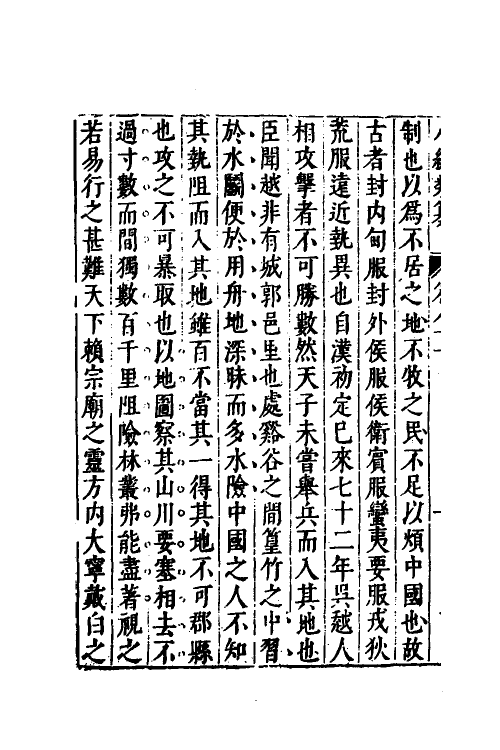 制也以爲不居之地不牧之民不足以煩中國也故
古者封内甸服封外侯服侯衛賓服蠻夷要服戎狄
荒服遠近埶異也自漢初定已來七十二年吳越人
相攻擊者不可勝數然天子未嘗舉兵而入其地也
臣聞越非有城郭邑里也處谿谷之間篁竹之中習
於水鬭便於用舟地深昧而多水險中國之人不知
其埶阻而入其地雖百不當其一得其地不可郡縣
也攻之不可暴取也以地圖察其山川要塞相去不
過寸數而間獨數百千里阻險林叢弗能盡著視之
若易行之甚難天下賴宗廟之靈方内大寧戴白之